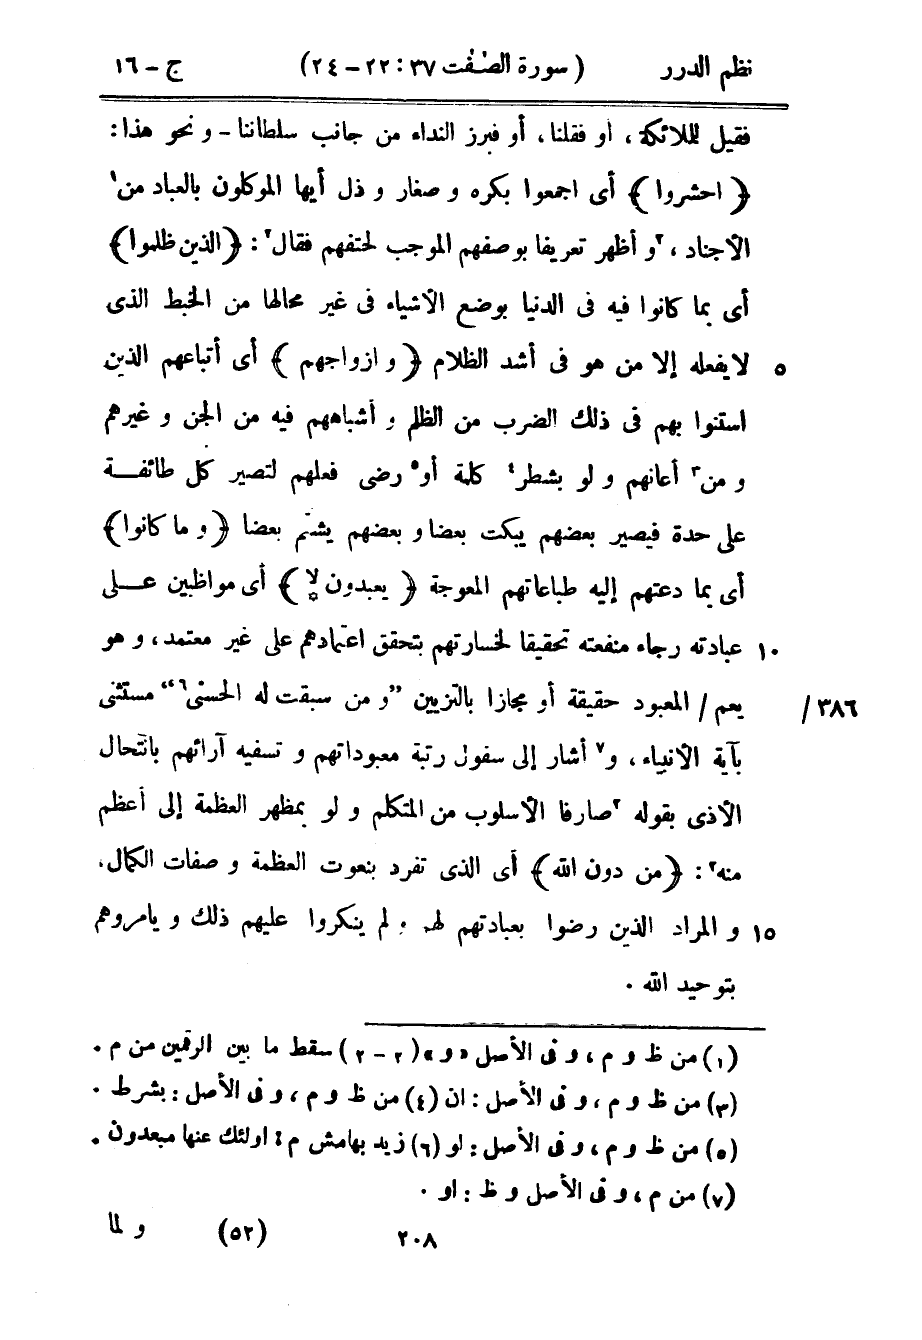 نظم الدرر ( سورة الصّٰفّٰت ٣٧ : ٢٢ – ٢٤ ) ج – ١٦
فقيل للملائكة ، أو فقلنا ، أو فبرز النداء من جانب سلطاننا - و نحو هذا :
﴿ احشروا ﴾ أى اجمعوا بكره و صغار و ذل أيها الموكلون بالعباد من١
الأجناد ، ٢و أظهر تعريفا بوصفهم الموجب لحتفهم فقال٢ : ﴿ الذين ظلموا ﴾
أى بما كانوا فيه فى الدنيا بوضع الأشياء فى غير محالها من الخبط الذى
٥ لا يفعله إلا من هو فى أشد الظلام ﴿ و ازواجهم ﴾ أى أتباعهم الذين
استنوا بهم فى ذلك الضرب من الظلم و أشباههم فيه من الجن و غيرهم
و من٣ أعانهم و لو بشطر٤ كلمة أو٥ رضى فعلهم لتصير كل طائفة
على حدة فيصير بعضهم يبكت بعضا و بعضهم يشتم بعضا ﴿ و ما كانوا ﴾
أى بما دعتهم إليه طباعاتهم المعوجة ﴿ يعبدون لا ﴾ أى مواظبين على
١٠ عبادته رجاء منفعته تحقيقا لخسارتهم بتحقق اعتمادهم على غير معتمد ، و هو
٣٨٦ / يعم / المعبود حقيقة أو مجازا بالتزيين “و من سبقت له الحسنى٦“ مستثنى
بآية الأنبياء ، و٧ أشار إلى سفول رتبة معبوداتهم و تسفيه آرائهم بانتحال
الأذى بقوله ٢صارفا الأسلوب من المتكلم و لو بمظهر العظمة إلى أعظم
منه٢ : ﴿ من دون الله ﴾ أى الذى تفرد بنعوت العظمة و صفات الكمال ،
١٥ و المراد الذين رضوا بعبادتهم لهم و لم ينكروا عليهم ذلك و يامروهم
بتوحيد الله .
(١) من ظ و م ، و فى الأصل «و» (٢ – ٢) سقط ما بين الرقمين من م .
(٣) من ظ و م ، و فى الأصل : ان (٤) من ظ و م ، و فى الأصل : بشرط .
(٥) من ظ و م ، و فى الأصل : لو (٦) زيد بهامش م : اولئك عنها مبعدون .
(٧) من م ، و فى الأصل و ظ : او .
٢٠٨ (٥٢) و لما